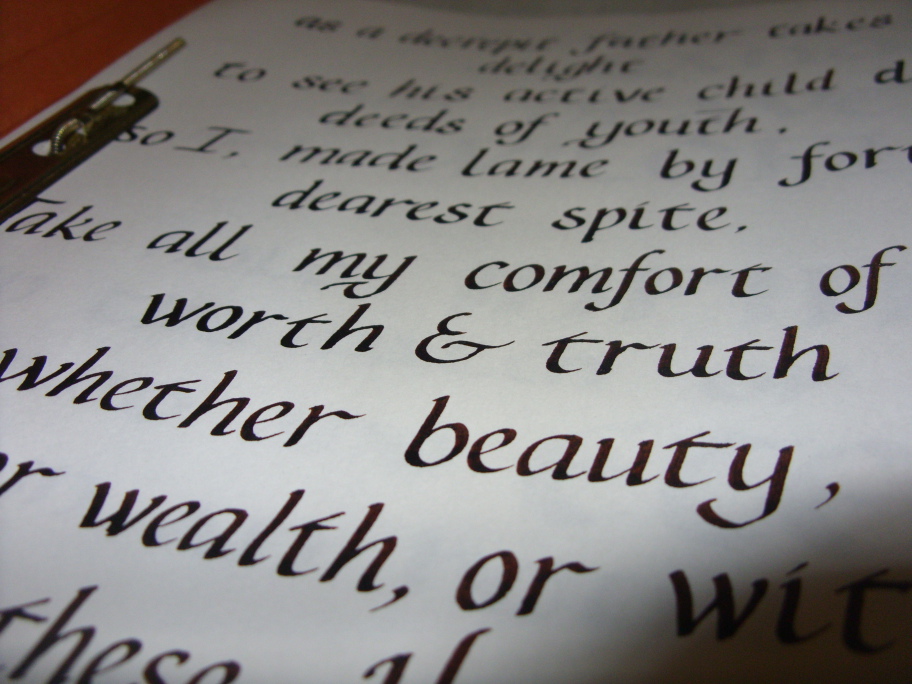 as a decrepit father takes
delight
to see his active child d
deeds of youth.
so I, made lame by for
dearest spite,
Take all my comfort of
worth & truth
whether beauty,
or wealth, or wit
these